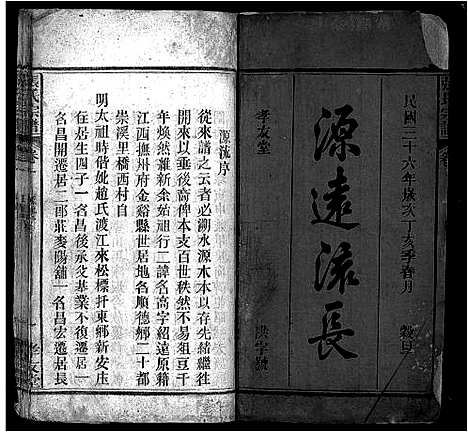 民國三十六年歲次丁亥季春月 穀旦
源遠流長
孝友堂
源流序
從來譜之云者必溯水源木本以存先緒繼往
開來以垂裔俾本支百世秩然不易祖豆千
年煥然維新余始祖行二諱名高字紹達原籍
江西撫州府金谿縣世居地名順德鄉二十都
崇溪里橋西村自
明太祖時偕妣趙氏渡江來松標扦東鄉新安庄
在住居生四子一名昌後承父基業不復遷居一
名昌開遷居二郎莊麥陽舖一名昌宏遷居長
張氏宗譜